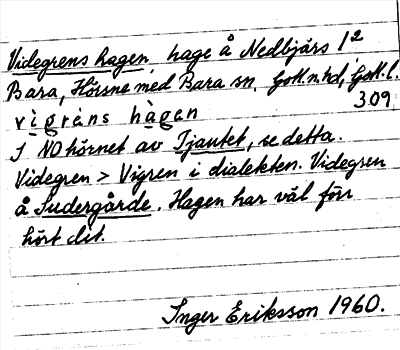 Videgrens hagen, hage å Nedbjärs 1²
Bara, Hörsne med Bara sn, Gotl.n.hd, Gotl.l.
309
vigrèns hàgen
I NO hörnet av Tjautet, se detta.
Videgren > Vigren i dialekten. Videgren
å Sudergårde. Hagen har väl förr
hört dit.
Inger Eriksson 1960.